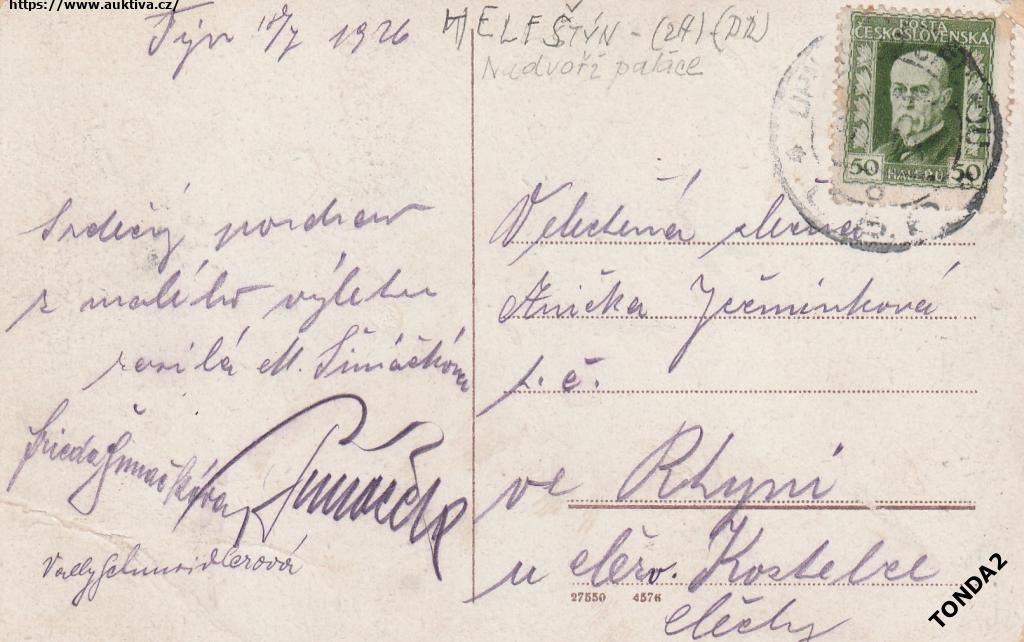 https://www.auktiva.cz/
Týn 18/7 1926
HELFŠTÝN - (ZA) - (DR)
Nádvoří paláce
POŠTA
ČESKOSLOVENSKÁ
50 HALÉŘŮ 50
Srdečný pozdrav
z malého výletu
zasílá M. Šimáčková
Frieda Šimáčková
Šimáček
Vally Schneidlerová
Velectěná slečna
Anička Ječmínková
z. č.
ve Rhyni
u Červ. Kostelce
Čechy
27550 4576
TONDA2